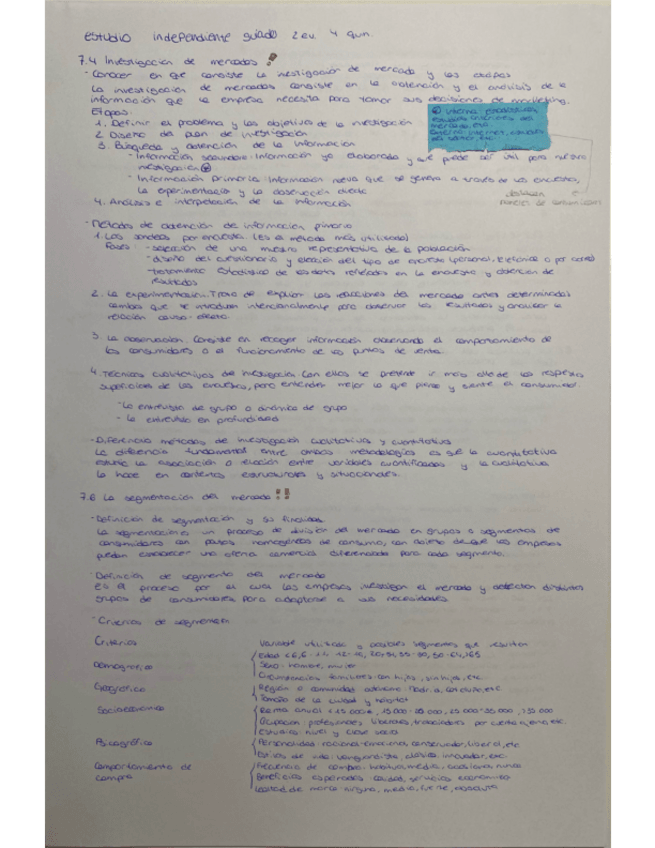 estudio independiente guiado 2 ev. 4 qun.
7.4 Investigación de mercados
- Conocer en qué consiste la investigación de mercado y las etapas
La investigación de mercados consiste en la obtención y el análisis de la
información que la empresa necesita para tomar sus decisiones de marketing.
Etapas:
1. Definir el problema y los objetivos de la investigación
2. Diseño del plan de investigación
3. Búsqueda y obtención de la información
- Información secundaria: Información ya elaborada y que puede ser útil para nuestra
investigación
- Información primaria: Información nueva que se genera a través de las encuestas,
la experimentación y la observación directa
4. Análisis e interpretación de la información
interna: estadísticas
estudios anteriores del
mercado, etc.
destacan
paneles de consumidores
- Métodos de obtención de información primaria
1. Los sondeos por encuesta. (es el método más utilizado)
Fases: - selección de una muestra representativa de la población
- diseño del cuestionario y elección del tipo de encuesta (personal, telefónica o por correo)
- tratamiento estadístico de los datos reflejados en la encuesta y obtención de
resultados
2. La experimentación. Trata de explicar las reacciones del mercado antes determinados
cambios que se introducen intencionalmente para observar los resultados y analizar la
relación causa-efecto.
3. La observación. Consiste en recoger información observando el comportamiento de
los consumidores o el funcionamiento de los puntos de venta.
4. Técnicas cualitativas de investigación. Con ellas se pretende ir más allá de las respuestas
superficiales de las encuestas, para entender mejor lo que piensa y siente el consumidor.
- La entrevista de grupo o dinámica de grupo
- La entrevista en profundidad
- Diferencia métodos de investigación cualitativa y cuantitativa
La diferencia fundamental entre ambas metodologías es que la cuantitativa
estudia la asociación o relación entre variables cuantificadas y la cualitativa
lo hace en contextos estructurales y situacionales.
7.6 La segmentación del mercado !!
- Definición de segmentación y su finalidad
La segmentación es un proceso de división del mercado en grupos o segmentos de
consumidores con pautas homogéneas de consumo, con objeto de que las empresas
puedan establecer una oferta comercial diferenciada para cada segmento.
- Definición de segmento del mercado
es el proceso por el cual las empresas investigan el mercado y detectan distintos
grupos de consumidores para adaptarse a sus necesidades.
- Criterios de segmentación
Criterios Variable utilizada y posibles segmentos que resultan
Edad <6, 6-11, 12-19, 20-34, 35-50, 50-64, >65
Demográfico Sexo: hombre, mujer
Circunstancias familiares: con hijos, sin hijos, etc.
Geográfico Región o comunidad autónoma: Madrid, Cataluña, etc
Tamaño de la ciudad y hábitat
Socioeconómico Renta anual <15 000€, 15 000-25 000, 25 000-35 000, >35 000
Ocupación: profesionales liberales, trabajadores por cuenta ajena, etc.
Estudios nivel y clase social
Psicográfico Personalidad: racional-emocional, conservador, liberal, etc
Estilos de vida: vanguardista, clásico, innovador, etc.
Comportamiento de Frecuencia de compra: habitual, media, ocasional, nunca
compra Beneficios esperados: calidad, servicios, económico
Lealtad de marca: ninguna, media, fuerte, absoluta